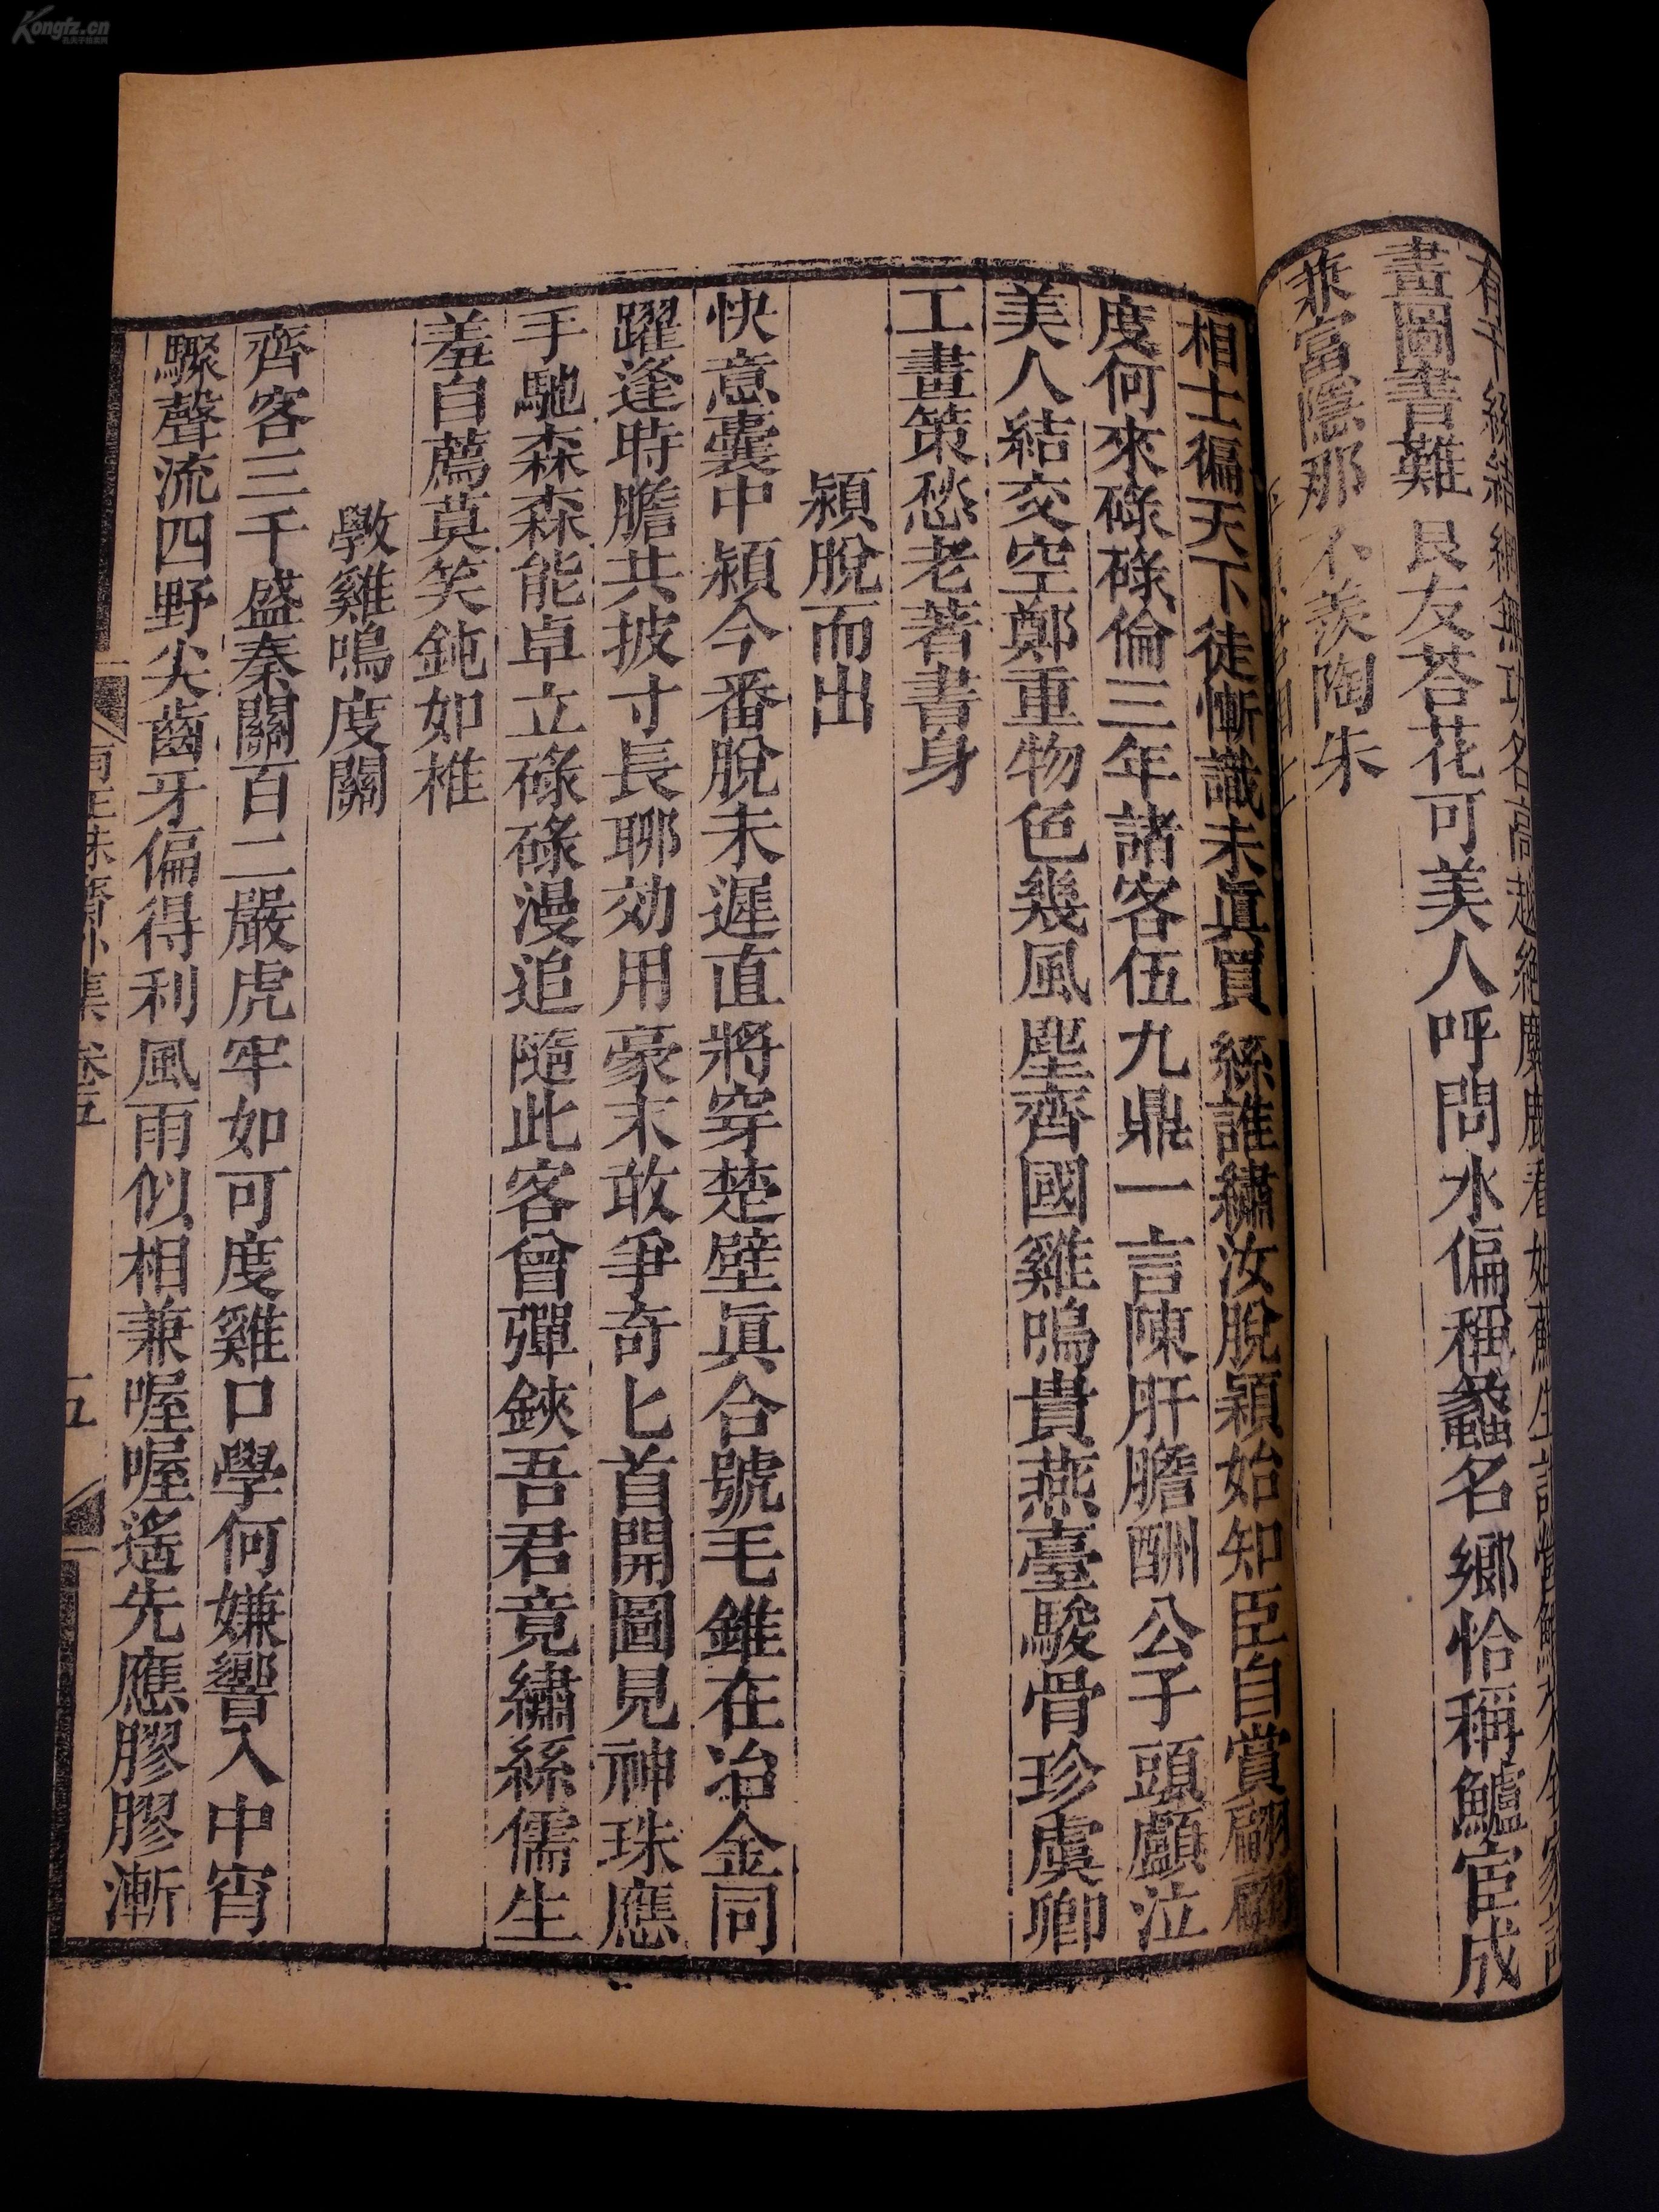 畫圖書難 良友苕花可美人呼問水偏稱蠡名鄉恰稱鱸宦成
兼富隱那不羨陶朱
相士徧天下徒慚識未眞買絲誰繡汝脫穎始知臣自賞翩翩
度何來碌碌倫三年諸客伍九鼎一言陳肝膽酬公子頭顱泣
美人結交空鄭重物色幾風塵齊國雞鳴貴燕臺駿骨珍虞卿
工畫策愁老著書身
穎脫而出
快意囊中穎今番脫未遲直將穿楚壁眞合號毛錐在冶金同
躍逢時膽共披寸長聊効用豪末敢爭奇匕首開圖見神珠應
手馳森森能卓立碌碌漫追隨此客曾彈鋏吾君竟繡絲儒生
羞自薦莫笑鈍如椎
斆雞鳴度關
齊客三千盛秦關百二嚴虎牢如可度雞口學何嫌響入中宵
驟聲流四野尖齒牙偏得利風雨似相兼喔喔遙先應膠膠漸
卷五
五
Kongfz.cn